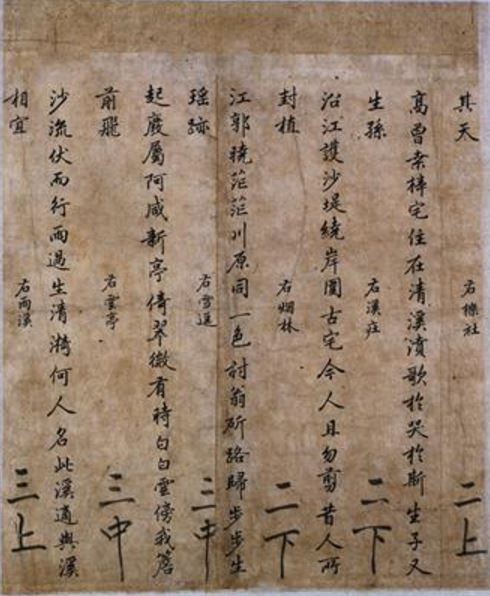 其天 右櫟社 二上
高曾桑梓宅住在清溪濆歌於哭於斯生子又
生孫 右溪庄 二下
沿江護沙堤繞岸圍古宅今人且勿剪昔人所
封植 右烟林 二下
江郭曉茫茫川原同一色村翁斫路歸步步生
瑶跡 右雪逕 三中
起廢屬阿咸新亭倚翠微有時白白雲傍我簷
前飛 右雲亭 三中
沙流伏而行雨過生清漪何人名此溪適與溪
相宜 右雨溪 三上